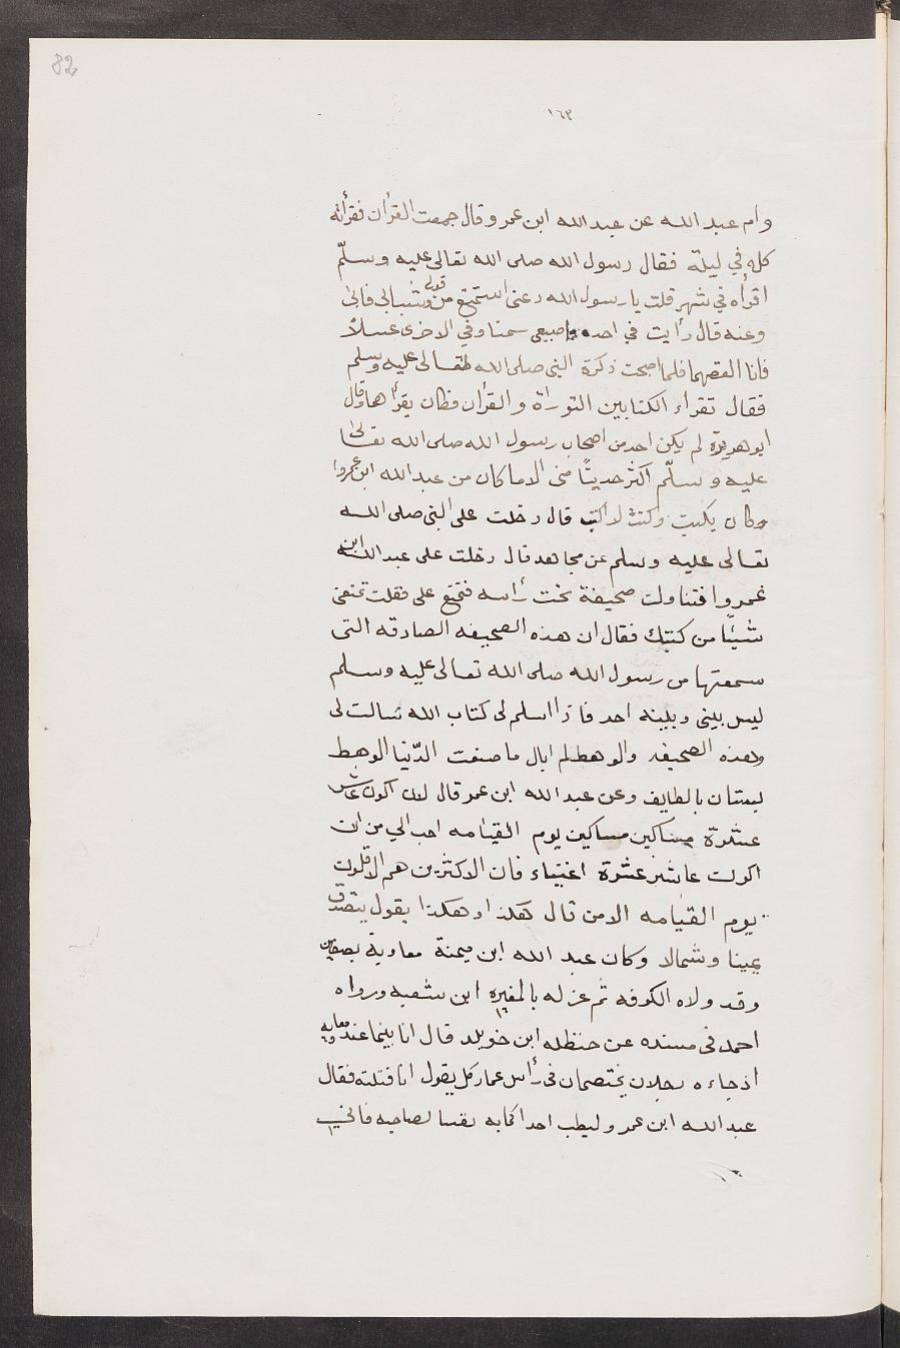 82
١٦٣
وام عبد الله عن عبد الله ابن عمرو قال جمعت القرأن فقرأته
كله في ليلة فقال رسول الله صلى الله تعالى عليه وسلّم
اقرأه في شهر قلت يا رسول الله دعنى استمتع من قوتى وشبابى فابى
وعنه قال رأيت في احد اصبعى سمنا وفي الاخرى عسلاً
فانا العقهما فلما اصبحت ذكرة النبى صلى الله تعالى عليه وسلم
فقال تقراء الكتابين التوراة والقرأن فكان يقرأهما وقال
ابو هريرة لم يكن احد من اصحاب رسول الله صلى الله تعالى
عليه وسلّم اكثر حديثًا منى الا ما كان من عبد الله ابن عمروا
وكان يكتب وكنت لا اكتب قال دخلت على النبى صلى الله
تعالى عليه وسلم عن مجاهد قال دخلت على عبد الله ابن
عمروا فتناولت صحيفة تحت رأسه فتمنع على فقلت تمنعنى
شيئًا من كتبك فقال ان هذه الصحيفه الصادقه التى
سمعتها من رسول الله صلى الله تعالى عليه وسلم
ليس بينى وبينه احد فاذا اسلم لى كتاب الله تعالت لى
وهذه الصحيفه والوهط لم ابال ما صنعت الدّنيا الوهط
لبستان بالطايف وعن عبد الله ابن عمر قال لان اكون عاشر
عشرة مساكين مساكين يوم القيامه احب الي من ان
اكون عاشر عشرة اغنياء فان الاكثرين هم الاقلون
يوم القيامه الا من قال هكذا وهكذا يقول يتصدق
يمينا وشمالا وكان عبد الله ابن ميمنة معاوية بصفين
وقد ولاه الكوفه ثم عزله بالمغيره ابن شعبه ورواه
احمد في مسنده عن حنظله ابن خويلد قال انا بينما عند معاويه
اذ جاءه رجلان يختصمان فى رأس عمار كل يقول انا قتلته فقال
عبد الله ابن عمرو ليطب احداكما به نفسا لصاحبه فانى